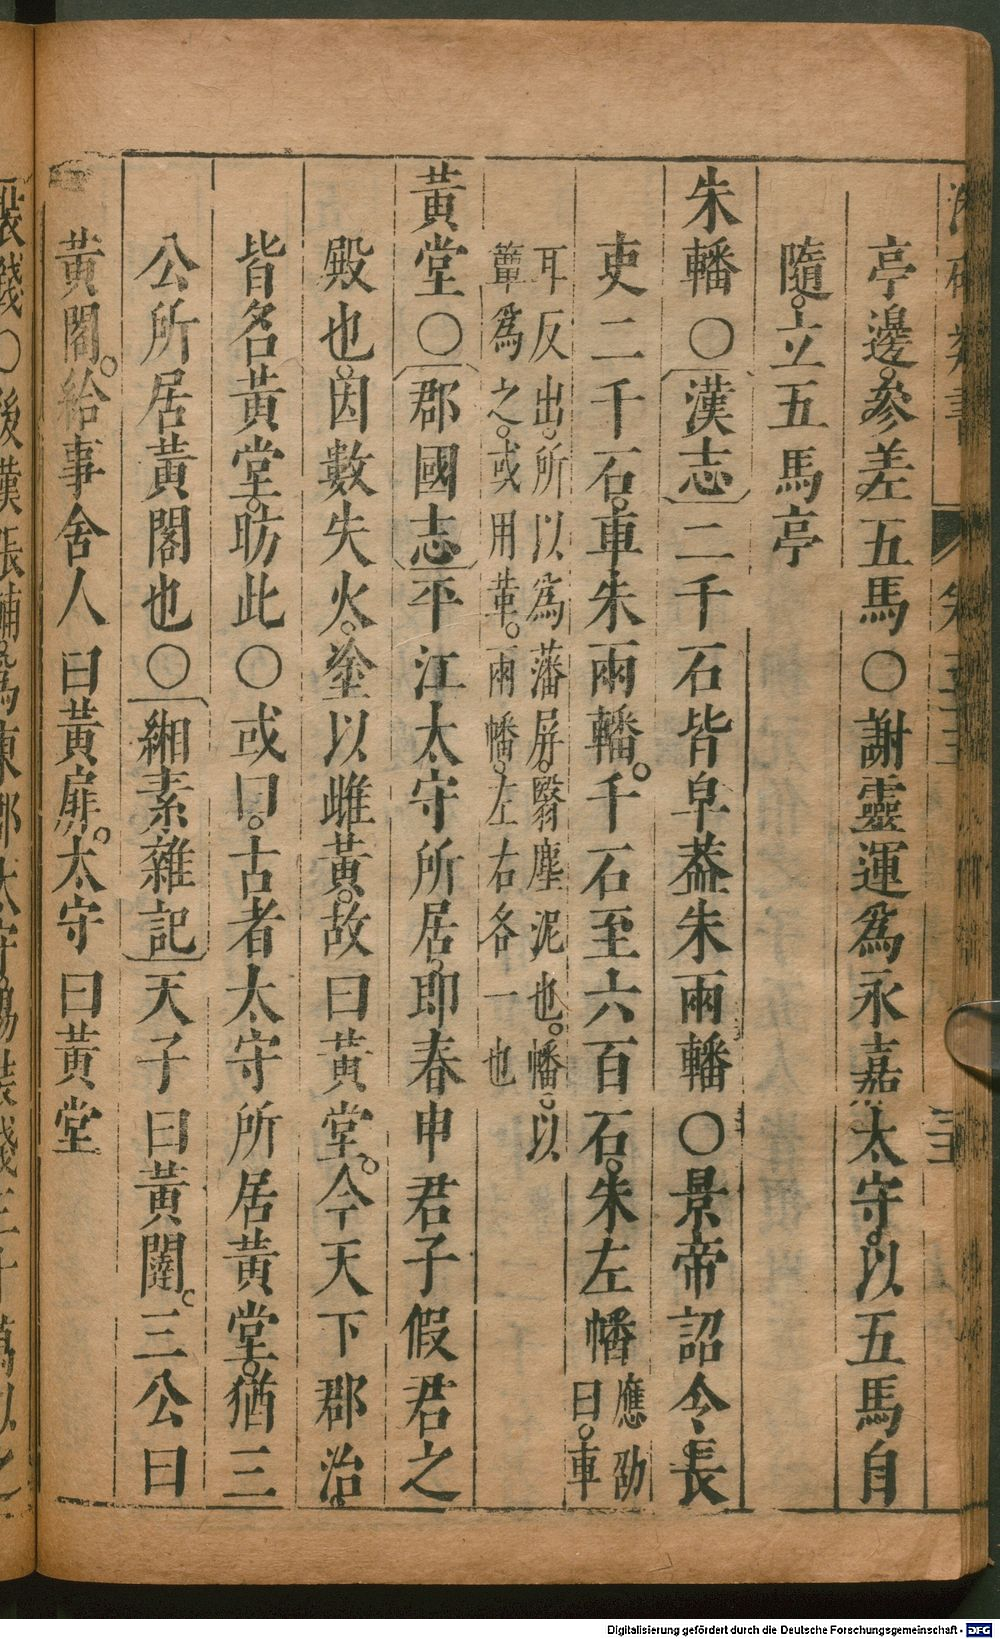 亭邊。參差五馬〇謝靈運爲永嘉太守。以五馬自
隨。立五馬亭
朱轓〇漢志二千石皆皁葢朱兩轓〇景帝詔令長
吏二千石。車朱兩轓。千石至六百石。朱左幡應劭曰。車
耳反出。所以爲藩屏。翳塵泥也。幡。以
簟爲之。或用革。兩幡。左右各一也
黃堂〇郡國志平江太守所居。即春申君子假君之
殿也。因數失火。塗以雌黃。故曰黃堂。今天下郡治。
皆名黃堂。昉此〇或曰。古者太守所居黃堂。猶三
公所居黃閣也〇緗素雜記天子曰黃闥。三公曰
黃閣。給事舍人曰黃扉。太守曰黃堂
Digitalisierung gefördert durch die Deutsche Forschungsgemeinschaft - DFG